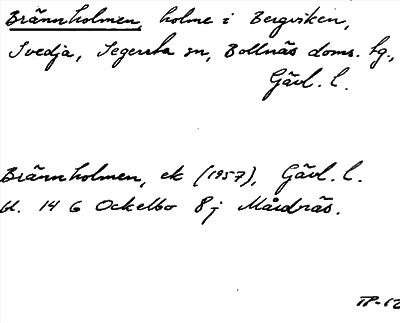 Brännholmen, holme i Bergviken,
Svedja, Segersta sn, Bollnäs doms. hg.,
Gävl. l.
Brännholmen, ek (1957), Gävl. l.
bl. 14 G Ockelbo 8 j Mårdnäs.